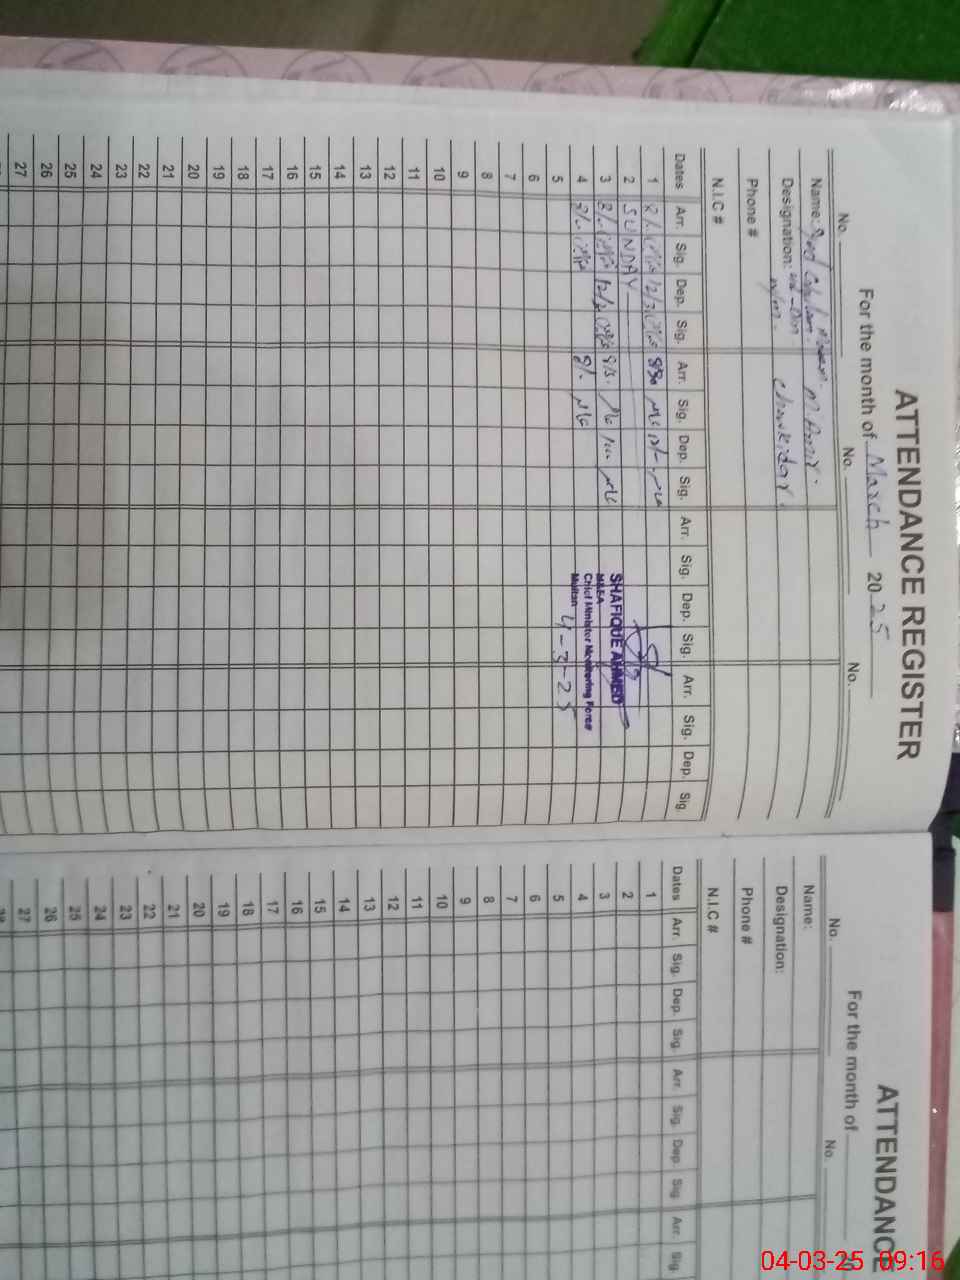 ATTENDANCE REGISTER
For the month of March 2025
No. No. No.
Name: M. Amir.
Designation: Chowkidar
Phone #
N.I.C #
Dates Arr. Sig. Dep. Sig. Arr. Sig. Dep. Sig. Arr. Sig. Dep. Sig. Arr. Sig. Dep. Sig.
1 8/- 830
2 SUNDAY
3 8/-
4 8/- 8/-
5
6
7
8
9
10
11
12
13
14
15
16
17
18
19
20
21
22
23
24
25
26
27
SHAFIQUE AHMED
MEA
Chief Minister Monitoring Force
Multan 4-3-25
ATTENDANCE
For the month of 20
No. No.
Name:
Designation:
Phone #
N.I.C #
Dates Arr. Sig. Dep. Sig. Arr. Sig. Dep. Sig. Arr. Sig.
1
2
3
4
5
6
7
8
9
10
11
12
13
14
15
16
17
18
19
20
21
22
23
24
25
26
27
28
04-03-25 09:16